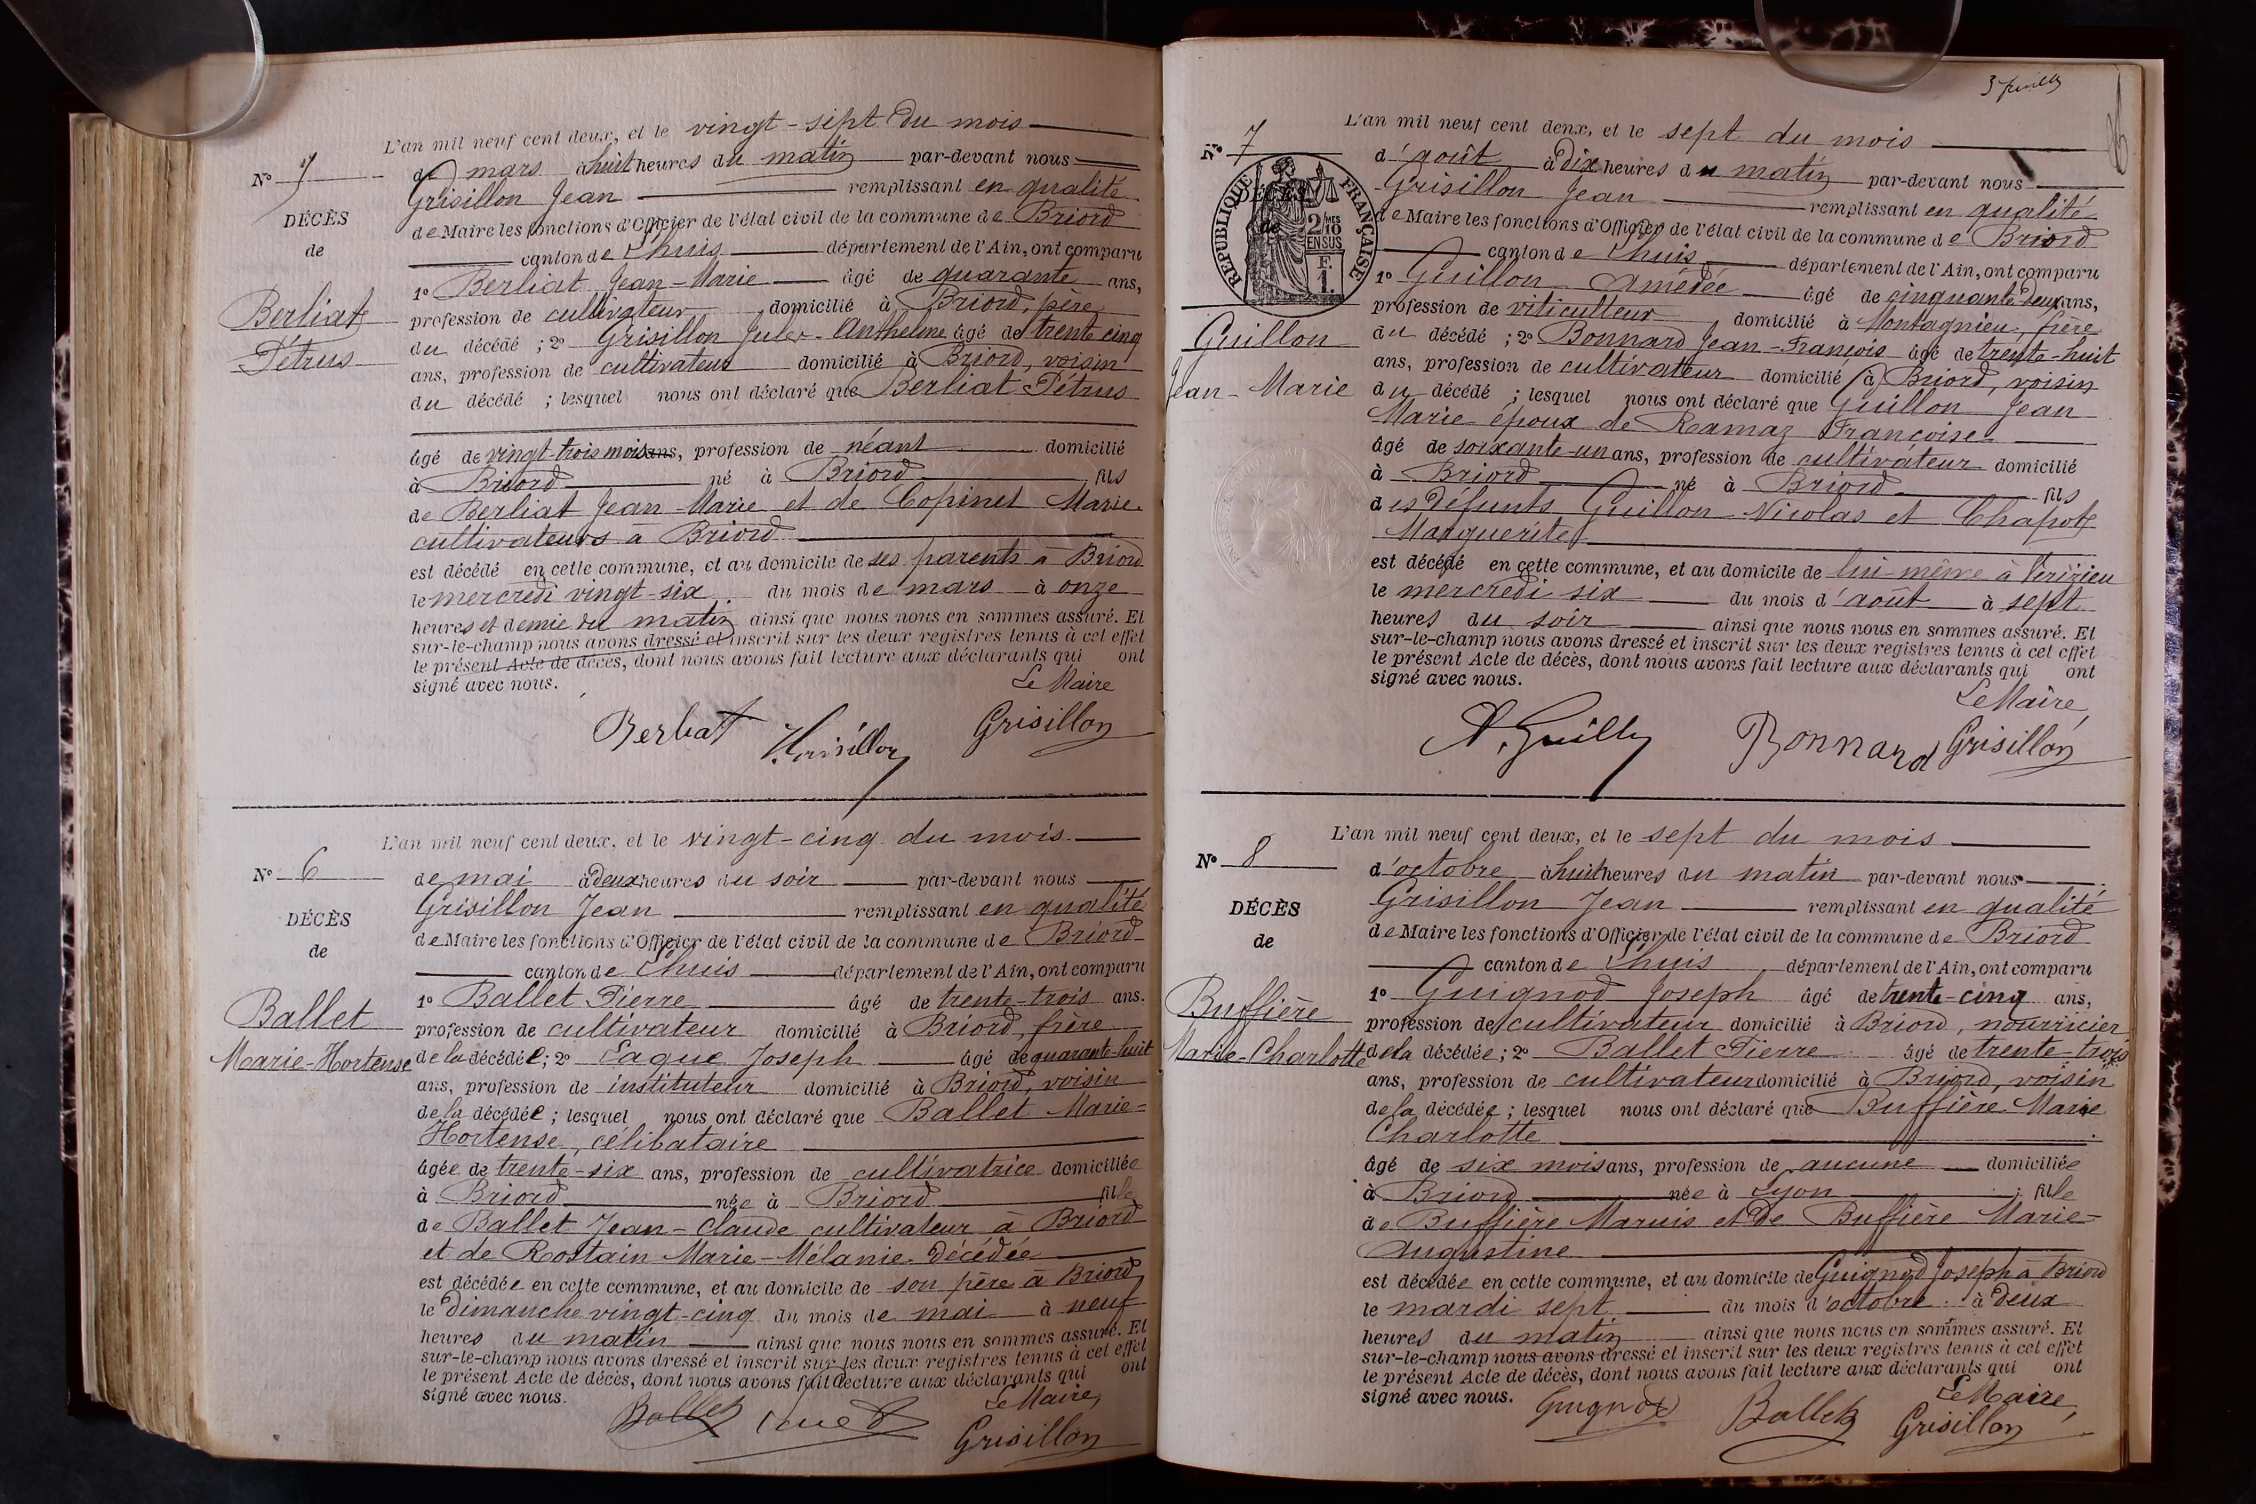 L'an mil neuf cent deux, et le vingt-sept du mois
N° 
de mars à huit heures du matin par-devant nous
Grisillon Jean remplissant en qualité
DÉCÈS
de Maire les fonctions d'Officier de l'état civil de la commune de Briord
de
canton de Lhuis département de l'Ain, ont comparu
1° Berliat Jean-Marie âgé de quarante ans,
Berliat
profession de cultivateur domicilié à Briord, père
Pétrus
du décédé ; 2° Grisillon Jules-Anthelme âgé de trente cinq
ans, profession de cultivateur domicilié à Briord, voisin
du décédé ; lesquel nous ont déclaré que Berliat Pétrus
âgé de vingt-trois mois ans, profession de néant domicilié
à Briord né à Briord fils
de Berliat Jean-Marie et de Copinet Marie
cultivateurs à Briord
est décédé en cette commune, et au domicile de ses parents à Briord
le mercredi vingt-six du mois de mars à onze
heures et demie du matin ainsi que nous nous en sommes assuré. Et
sur-le-champ nous avons dressé et inscrit sur les deux registres tenus à cet effet
le présent Acte de décès, dont nous avons fait lecture aux déclarants qui ont
signé avec nous. Le Maire
Berliat Grisillon Grisillon
L'an mil neuf cent deux, et le vingt-cinq du mois
N° 6
de mai à deux heures du soir par-devant nous
Grisillon Jean remplissant en qualité
DÉCÈS
de Maire les fonctions d'Officier de l'état civil de la commune de Briord
de
canton de Lhuis département de l'Ain, ont comparu
1° Ballet Pierre âgé de trente-trois ans.
Ballet
profession de cultivateur domicilié à Briord, frère
Marie-Hortense
de la décédée ; 2° Jaque Joseph âgé de quarante-huit
ans, profession de instituteur domicilié à Briord, voisin
de la décédée ; lesquel nous ont déclaré que Ballet Marie-
Hortense, célibataire
âgée de trente-six ans, profession de cultivatrice domiciliée
à Briord née à Briord fille
de Ballet Jean-Claude cultivateur à Briord
et de Rostain Marie-Mélanie décédée
est décédée en cette commune, et au domicile de son père à Briord
le Dimanche vingt-cinq du mois de mai à neuf
heures du matin ainsi que nous nous en sommes assuré. Et
sur-le-champ nous avons dressé et inscrit sur les deux registres tenus à cet effet
le présent Acte de décès, dont nous avons fait lecture aux déclarants qui ont
signé avec nous. Le Maire,
Ballet Grisillon
L'an mil neuf cent deux, et le sept du mois
N° 7
d'août à Dix heures du matin par-devant nous
Grisillon Jean remplissant en qualité
DÉCÈS
de Maire les fonctions d'Officier de l'état civil de la commune de Briord
de
RÉPUBLIQUE FRANÇAISE
2/10MES
EN SUS
F.
1.
canton de Lhuis département de l'Ain, ont comparu
1° Guillon Amédée âgé de cinquante deux ans,
profession de viticulteur domicilié à Montagnieu, frère
Guillon
du décédé ; 2° Bonnard Jean-François âgé de trente-huit
ans, profession de cultivateur domicilié à Briord, voisin
Jean-Marie
du décédé ; lesquel nous ont déclaré que Guillon Jean
Marie époux de Ramaz Françoise
âgé de soixante-un ans, profession de cultivateur domicilié
à Briord né à Briord fils
des Défunts Guillon Nicolas et Chapot
Marguerite
est décédé en cette commune, et au domicile de lui-même à Vérizieu
le mercredi six du mois d'août à sept
heures du soir ainsi que nous nous en sommes assuré. Et
sur-le-champ nous avons dressé et inscrit sur les deux registres tenus à cet effet
le présent Acte de décès, dont nous avons fait lecture aux déclarants qui ont
signé avec nous. Le Maire,
A. Guillon Bonnard Grisillon
L'an mil neuf cent deux, et le sept du mois
N° 8
d'octobre à huit heures du matin par-devant nous
Grisillon Jean remplissant en qualité
DÉCÈS
de Maire les fonctions d'Officier de l'état civil de la commune de Briord
de
canton de Lhuis département de l'Ain, ont comparu
1° Guignod Joseph âgé de trente-cinq ans,
Buffière
profession de cultivateur domicilié à Briord, nourricier
Marie-Charlotte
de la décédée ; 2° Ballet Pierre âgé de trente-trois
ans, profession de cultivateur domicilié à Briord, voisin
de la décédée ; lesquel nous ont déclaré que Buffière Marie
Charlotte
âgé de six mois ans, profession de aucune domiciliée
à Briord née à Lyon fille
de Buffière Marius et de Buffière Marie-
Augustine
est décédée en cette commune, et au domicile de Guignod Joseph à Briord
le mardi sept du mois d'octobre à Deux
heures du matin ainsi que nous nous en sommes assuré. Et
sur-le-champ nous avons dressé et inscrit sur les deux registres tenus à cet effet
le présent Acte de décès, dont nous avons fait lecture aux déclarants qui ont
signé avec nous. Le Maire,
Guignod Ballet Grisillon